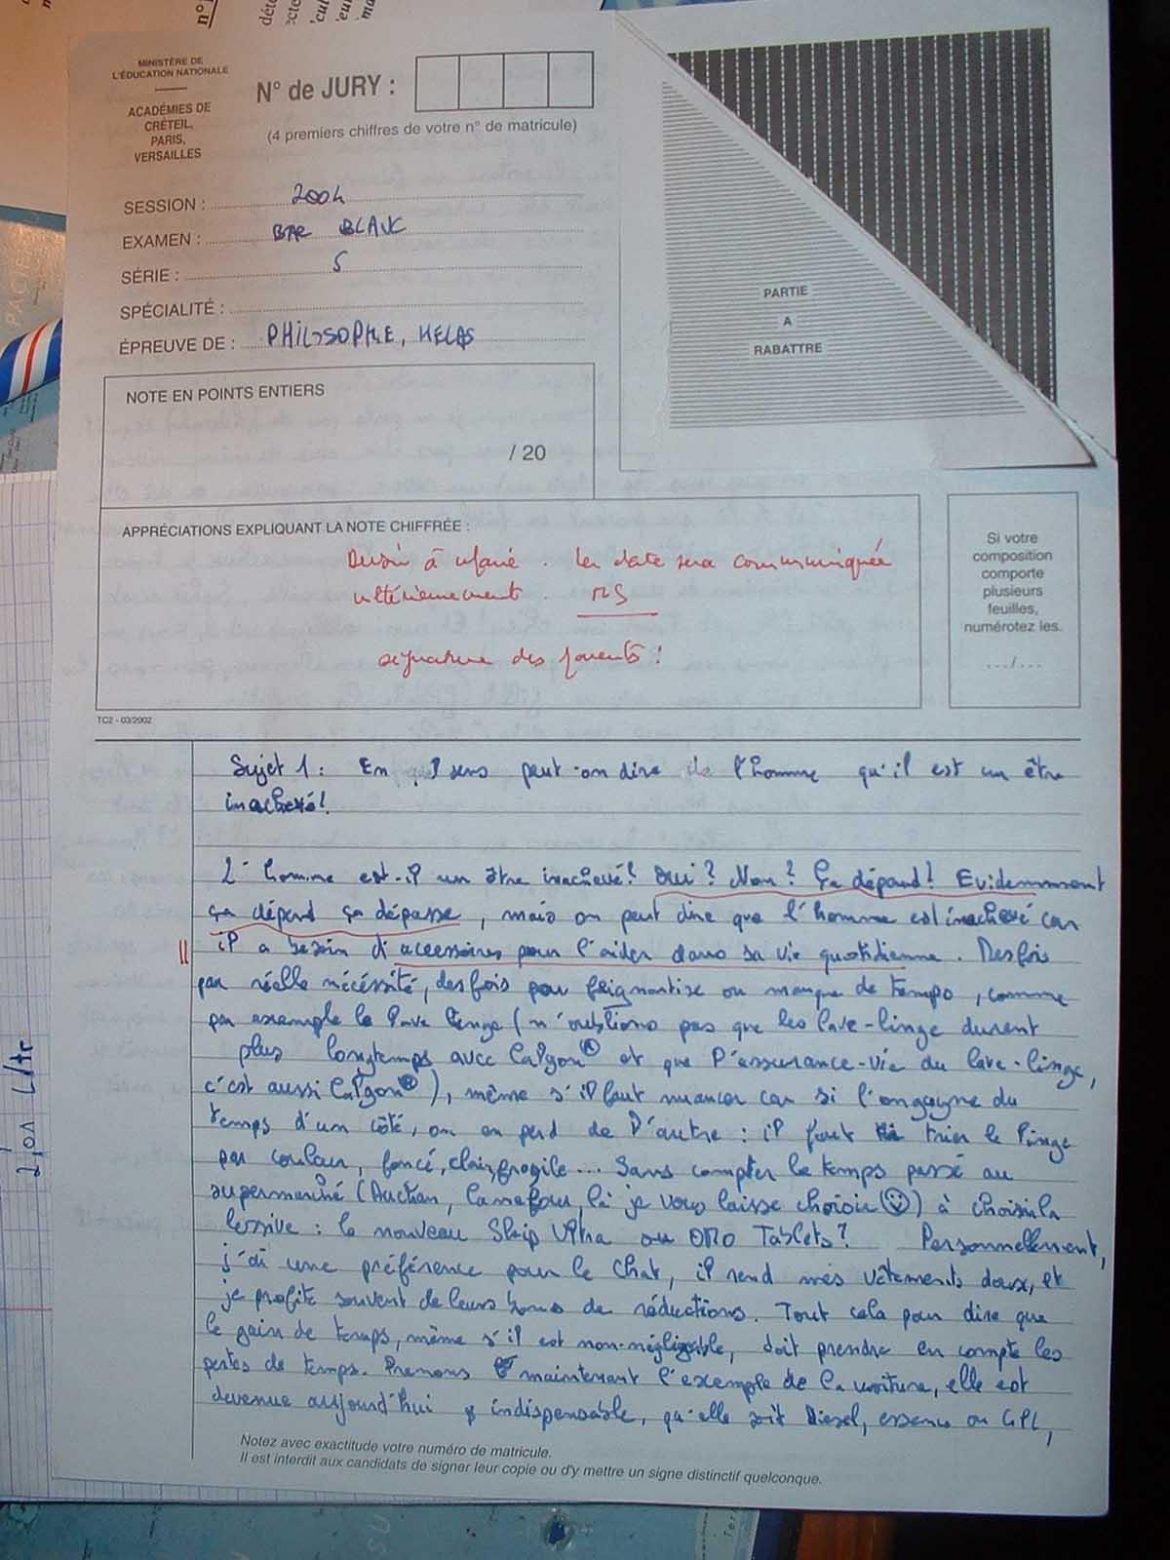 MINISTÈRE DE
L'ÉDUCATION NATIONALE
ACADÉMIES DE
CRÉTEIL,
PARIS,
VERSAILLES
N° de JURY :
(4 premiers chiffres de votre n° de matricule)
SESSION : 2004
EXAMEN : BAC BLANC
SÉRIE : S
SPÉCIALITÉ :
ÉPREUVE DE : PHILOSOPHIE, HELAS
PARTIE
A
RABATTRE
NOTE EN POINTS ENTIERS
/ 20
APPRÉCIATIONS EXPLIQUANT LA NOTE CHIFFRÉE :
Devoir à refaire. La date sera communiquée
ultérieurement.
signature des parents !
Si votre
composition
comporte
plusieurs
feuilles,
numérotez les.
.../...
TC2 - 03/2002
Sujet 1 : En quel sens peut-on dire de l'homme qu'il est un être
inachevé?
L'homme est-il un être inachevé? Oui? Non? Ça dépend! Evidemmment
ça dépend ça dépasse, mais on peut dire que l'homme est inachevé car
il a besoin d'accessoires pour l'aider dans sa vie quotidienne. Des fois
par réelle nécessité, des fois pour feignantise ou manque de temps, comme
par exemple le lave linge (n'oublions pas que les lave-linge durent
plus longtemps avec Calgon® et que l'assurance-vie du lave-linge,
c'est aussi Calgon®), même s'il faut nuancer car si l'on gagne du
temps d'un côté, on en perd de l'autre : il faut trier le linge
par couleur, foncé, clair, fragile... Sans compter le temps passé au
supermarché (Auchan, Carrefour, là je vous laisse choisir ☺) à choisir la
lessive : le nouveau Skip Ultra ou OMO Tablets? Personnellement,
j'ai une préférence pour le Chat, il rend mes vêtements doux, et
je profite souvent de leurs bons de réductions. Tout cela pour dire que
le gain de temps, même s'il est non-négligeable, doit prendre en compte les
pertes de temps. Prenons maintenant l'exemple de la voiture, elle est
devenue aujourd'hui indispensable, qu'elle soit Diesel, essence ou GPL,
Notez avec exactitude votre numéro de matricule.
Il est interdit aux candidats de signer leur copie ou d'y mettre un signe distinctif quelconque.